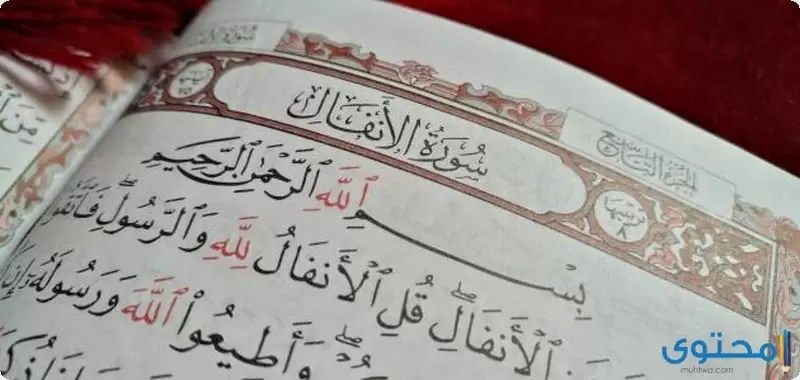 الجزء التاسع
سُورَةُ الأَنفَالِ
ترتيبها ٨
آياتها ٧٥
بِسْمِ ٱللَّهِ ٱلرَّحْمَٰنِ ٱلرَّحِيمِ
ٱلْأَنفَالِۖ قُلِ ٱلْأَنفَالُ لِلَّهِ وَٱلرَّسُولِۖ فَٱتَّقُوا۟
وَأَطِيعُوا۟ ٱللَّهَ وَرَسُولَهُۥٓ إِن
مِّنَ
محتوى
muhtwa.com